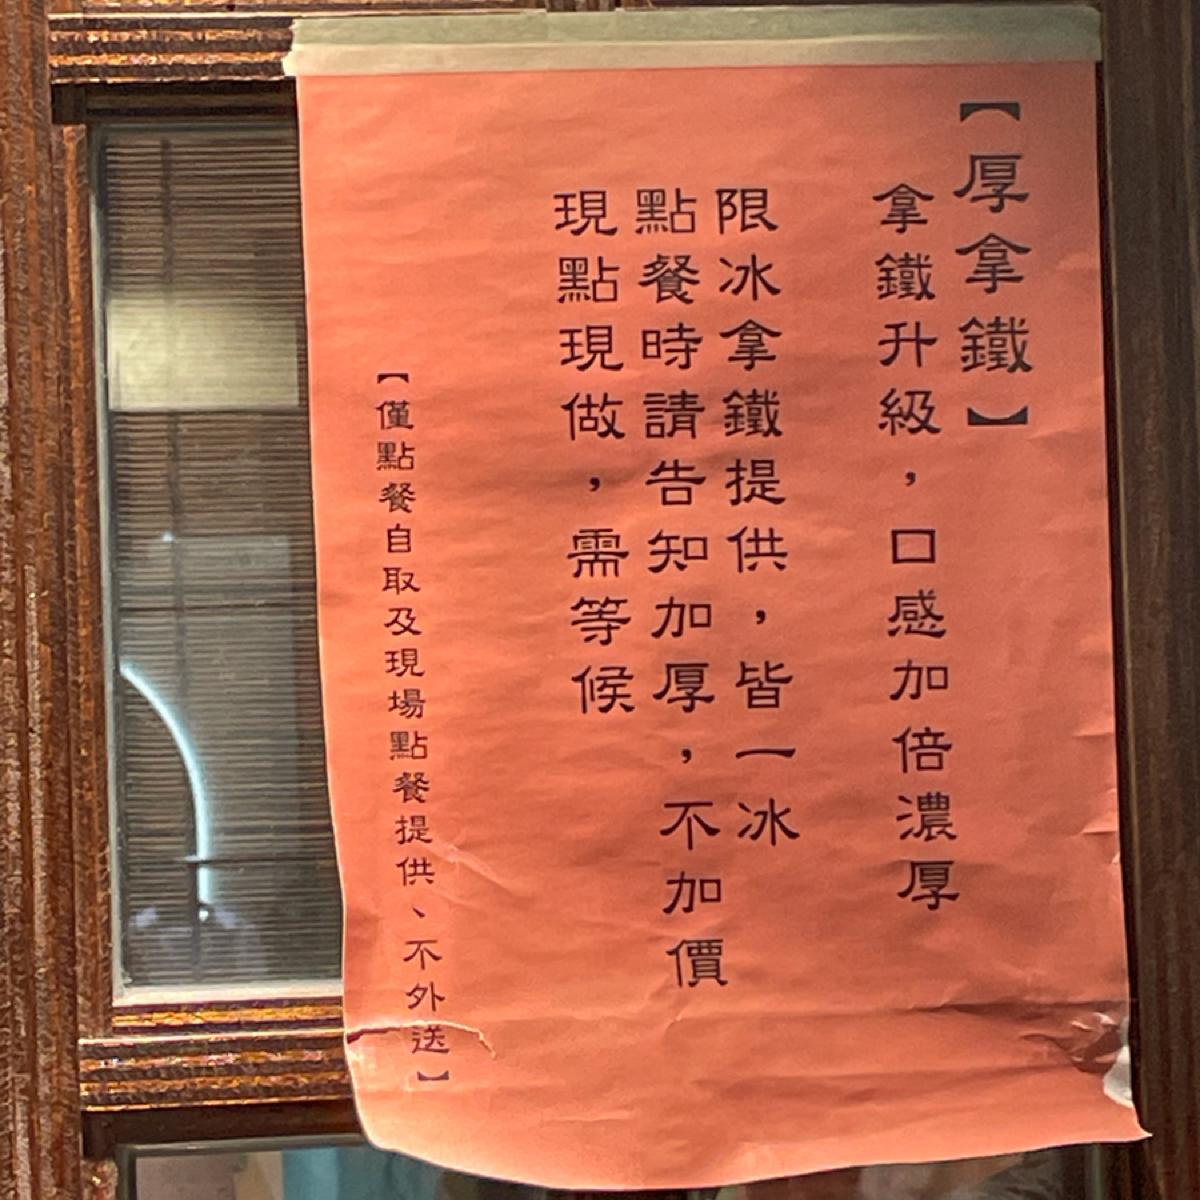 【厚拿鐵】
拿鐵升級，口感加倍濃厚
限冰拿鐵提供，皆一冰
點餐時請告知加厚，不加價
現點現做，需等候
【僅點餐自取及現場點餐提供、不外送】